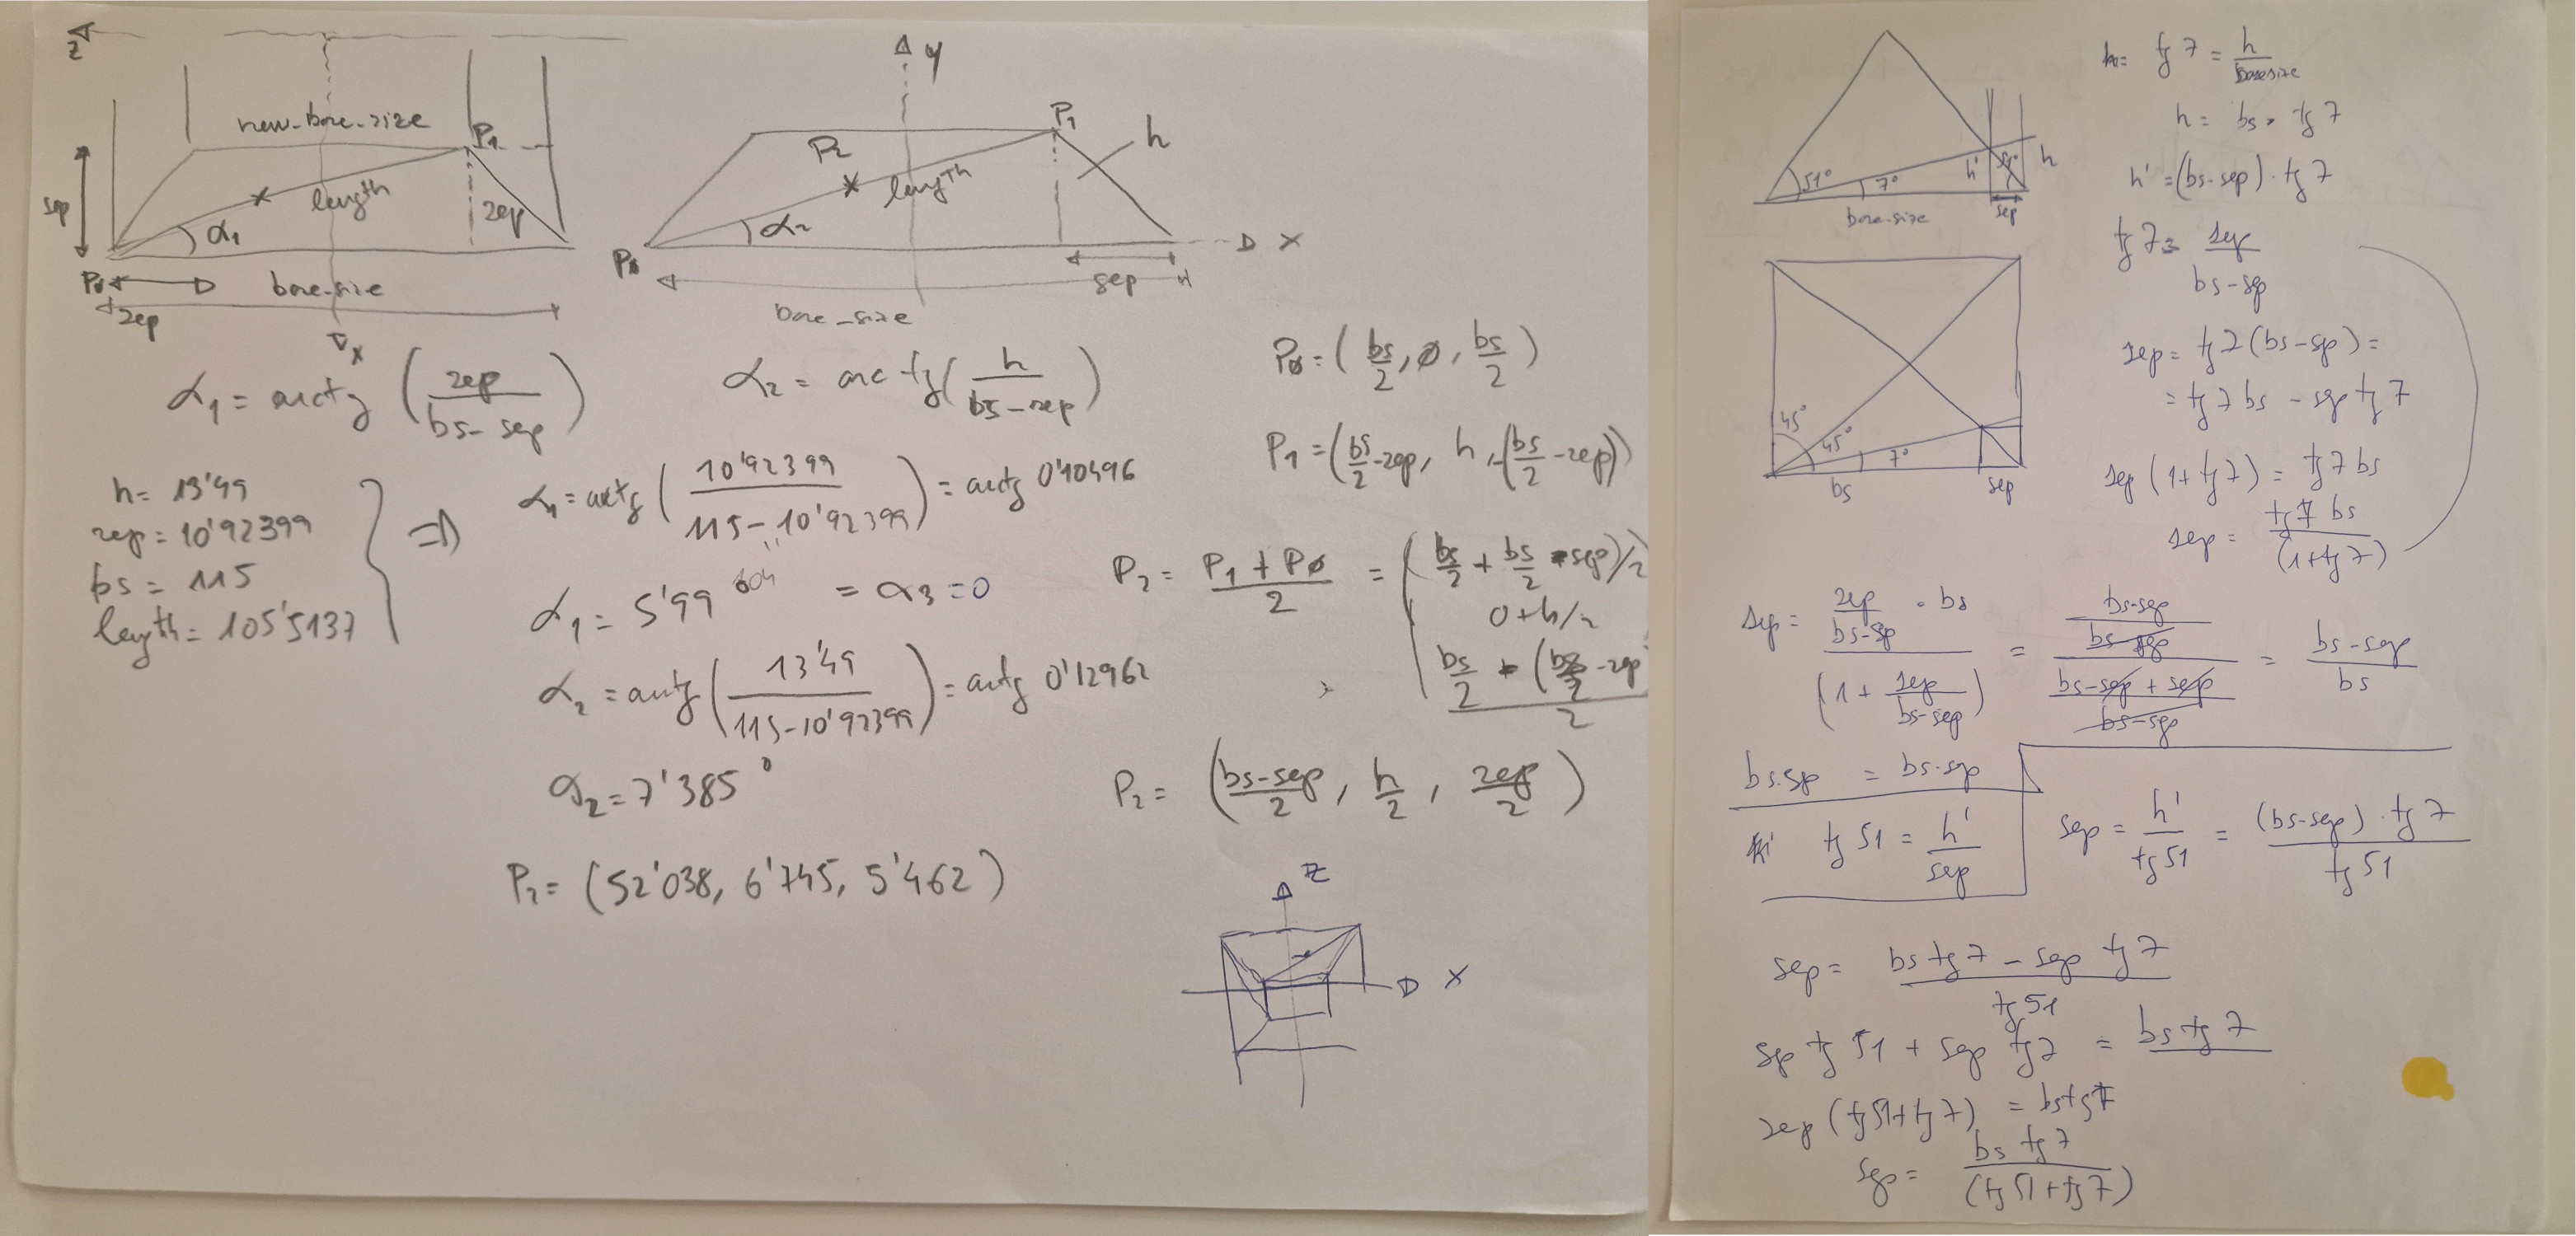 Z
new_base_size
P1
sep
length
sep
α1
PØ
base_size
sep
X
y
P1
P2
h
length
α2
PØ
X
sep
base_size
α1 = arctg (sep / bs-sep)
α2 = arctg (h / bs-sep)
PØ = (bs/2, Ø, bs/2)
P1 = (bs/2 - sep, h, -(bs/2 - sep))
h = 13'49
sep = 10'92399
bs = 115
length = 105'5137
=>
α1 = arctg (10'92399 / 115-10'92399) = arctg 0'10496
α1 = 5'99604 = α3 = 0
α2 = arctg (13'49 / 115-10'92399) = arctg 0'12962
α2 = 7'385°
P2 = (P1 + PØ) / 2 = (bs/2 + bs/2 - sep)/2
0+h/2
bs/2 - (bs/2 - sep / 2
P2 = (bs-sep / 2, h/2, sep/2)
P2 = (52'038, 6'745, 5'462)
Z
X
51°
7°
h'
51°
h
base-size
sep
h= tg 7 = h / basesize
h = bs · tg 7
h' = (bs-sep) · tg 7
tg 7 = sep / bs-sep
sep = tg 7 (bs-sep) =
= tg 7 bs - sep tg 7
sep (1+tg 7) = tg 7 bs
sep = tg 7 bs / (1+tg 7)
45°
45°
7°
bs
sep
sep = (sep / bs-sep · bs) / (1 + sep / bs-sep) = (bs·sep / bs-sep) / (bs-sep + sep / bs-sep) = bs·sep / bs
bs·sep = bs·sep
tg 51 = h' / sep
sep = h' / tg 51 = (bs-sep) · tg 7 / tg 51
sep = bs tg 7 - sep tg 7 / tg 51
sep tg 51 + sep tg 7 = bs tg 7
sep (tg 51 + tg 7) = bs tg 7
sep = bs tg 7 / (tg 51 + tg 7)